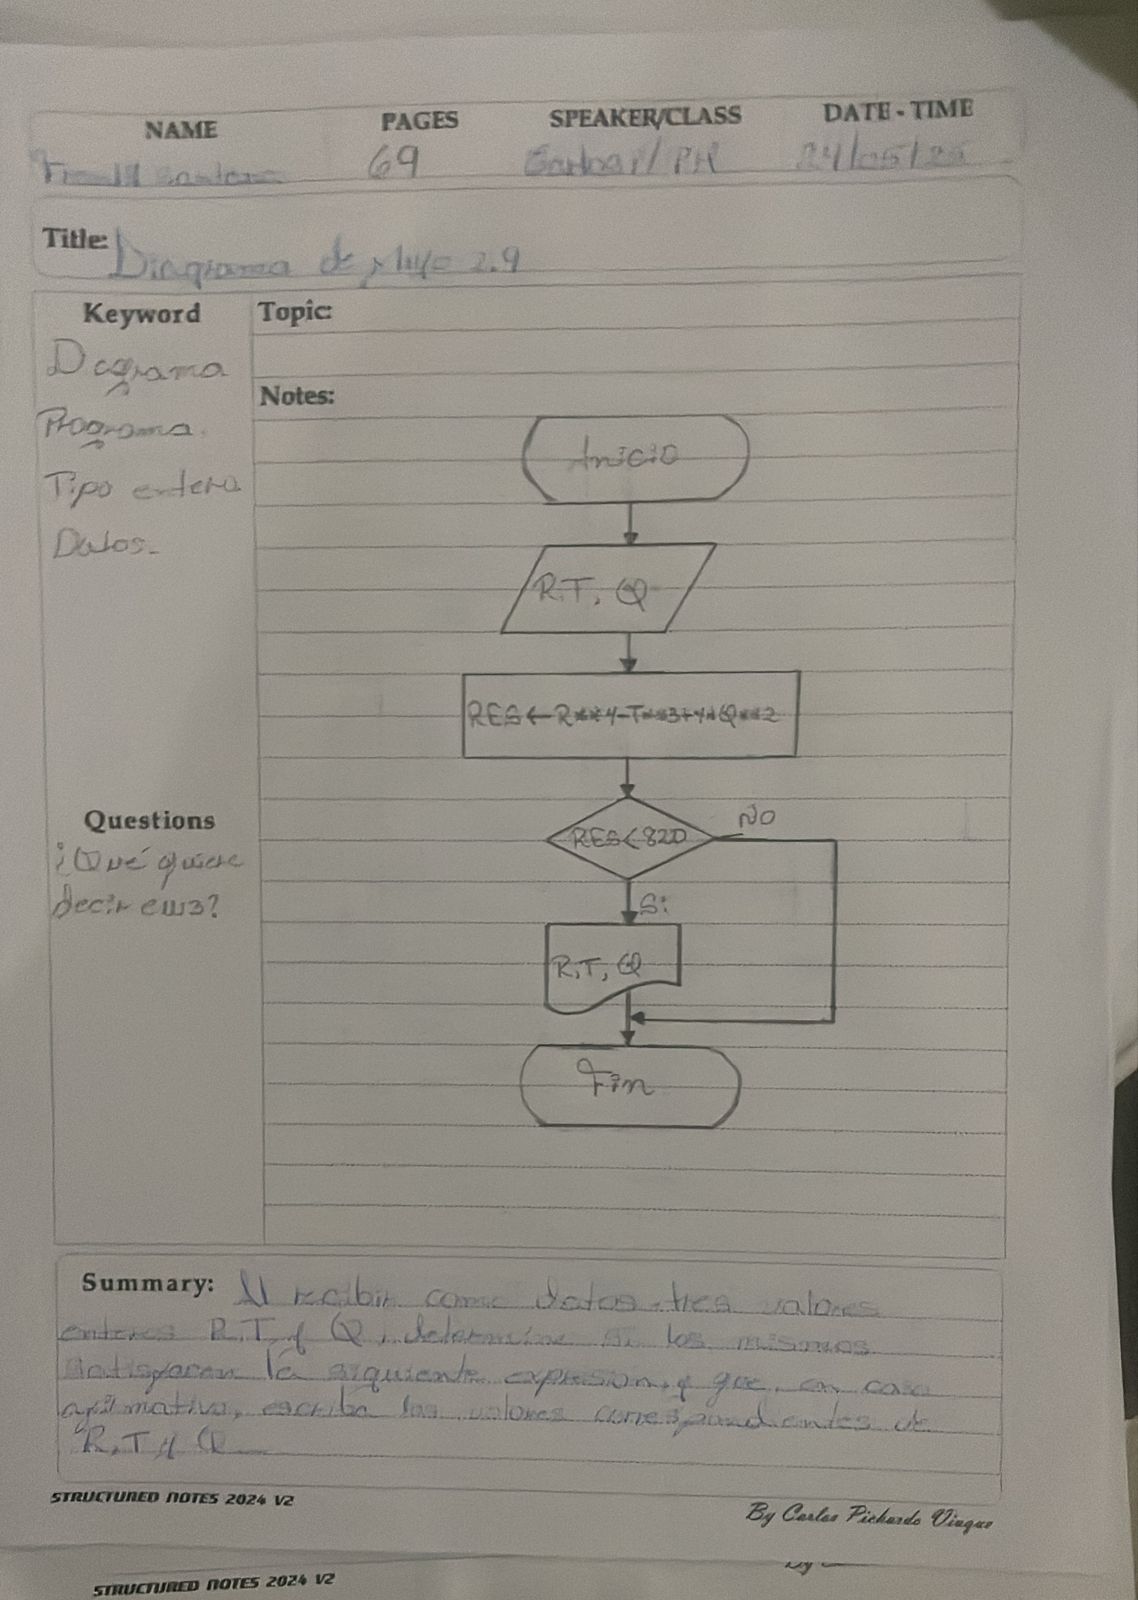 NAME PAGES SPEAKER/CLASS DATE - TIME
69 24/05/25
Title: Diagrama de flujo 2.9
Keyword
Diagrama
Programa.
Tipo entero
Datos.
Topic:
Notes:
Inicio
R,T, Q
RES ← R**4-T**3+4*Q**2
RES<820
NO
Si
R,T, Q
Fin
Questions
¿Qué quiere
decir
Summary: Al recibir como datos tres valores
enteros R,T, y Q, determine si los mismos
satisfacen la siguiente expresion, y que, en caso
afirmativo, escriba los valores correspondientes de
R,T y Q
STRUCTURED NOTES 2024 V2
By Carlos Pichardo Viuque
STRUCTURED NOTES 2024 V2
By